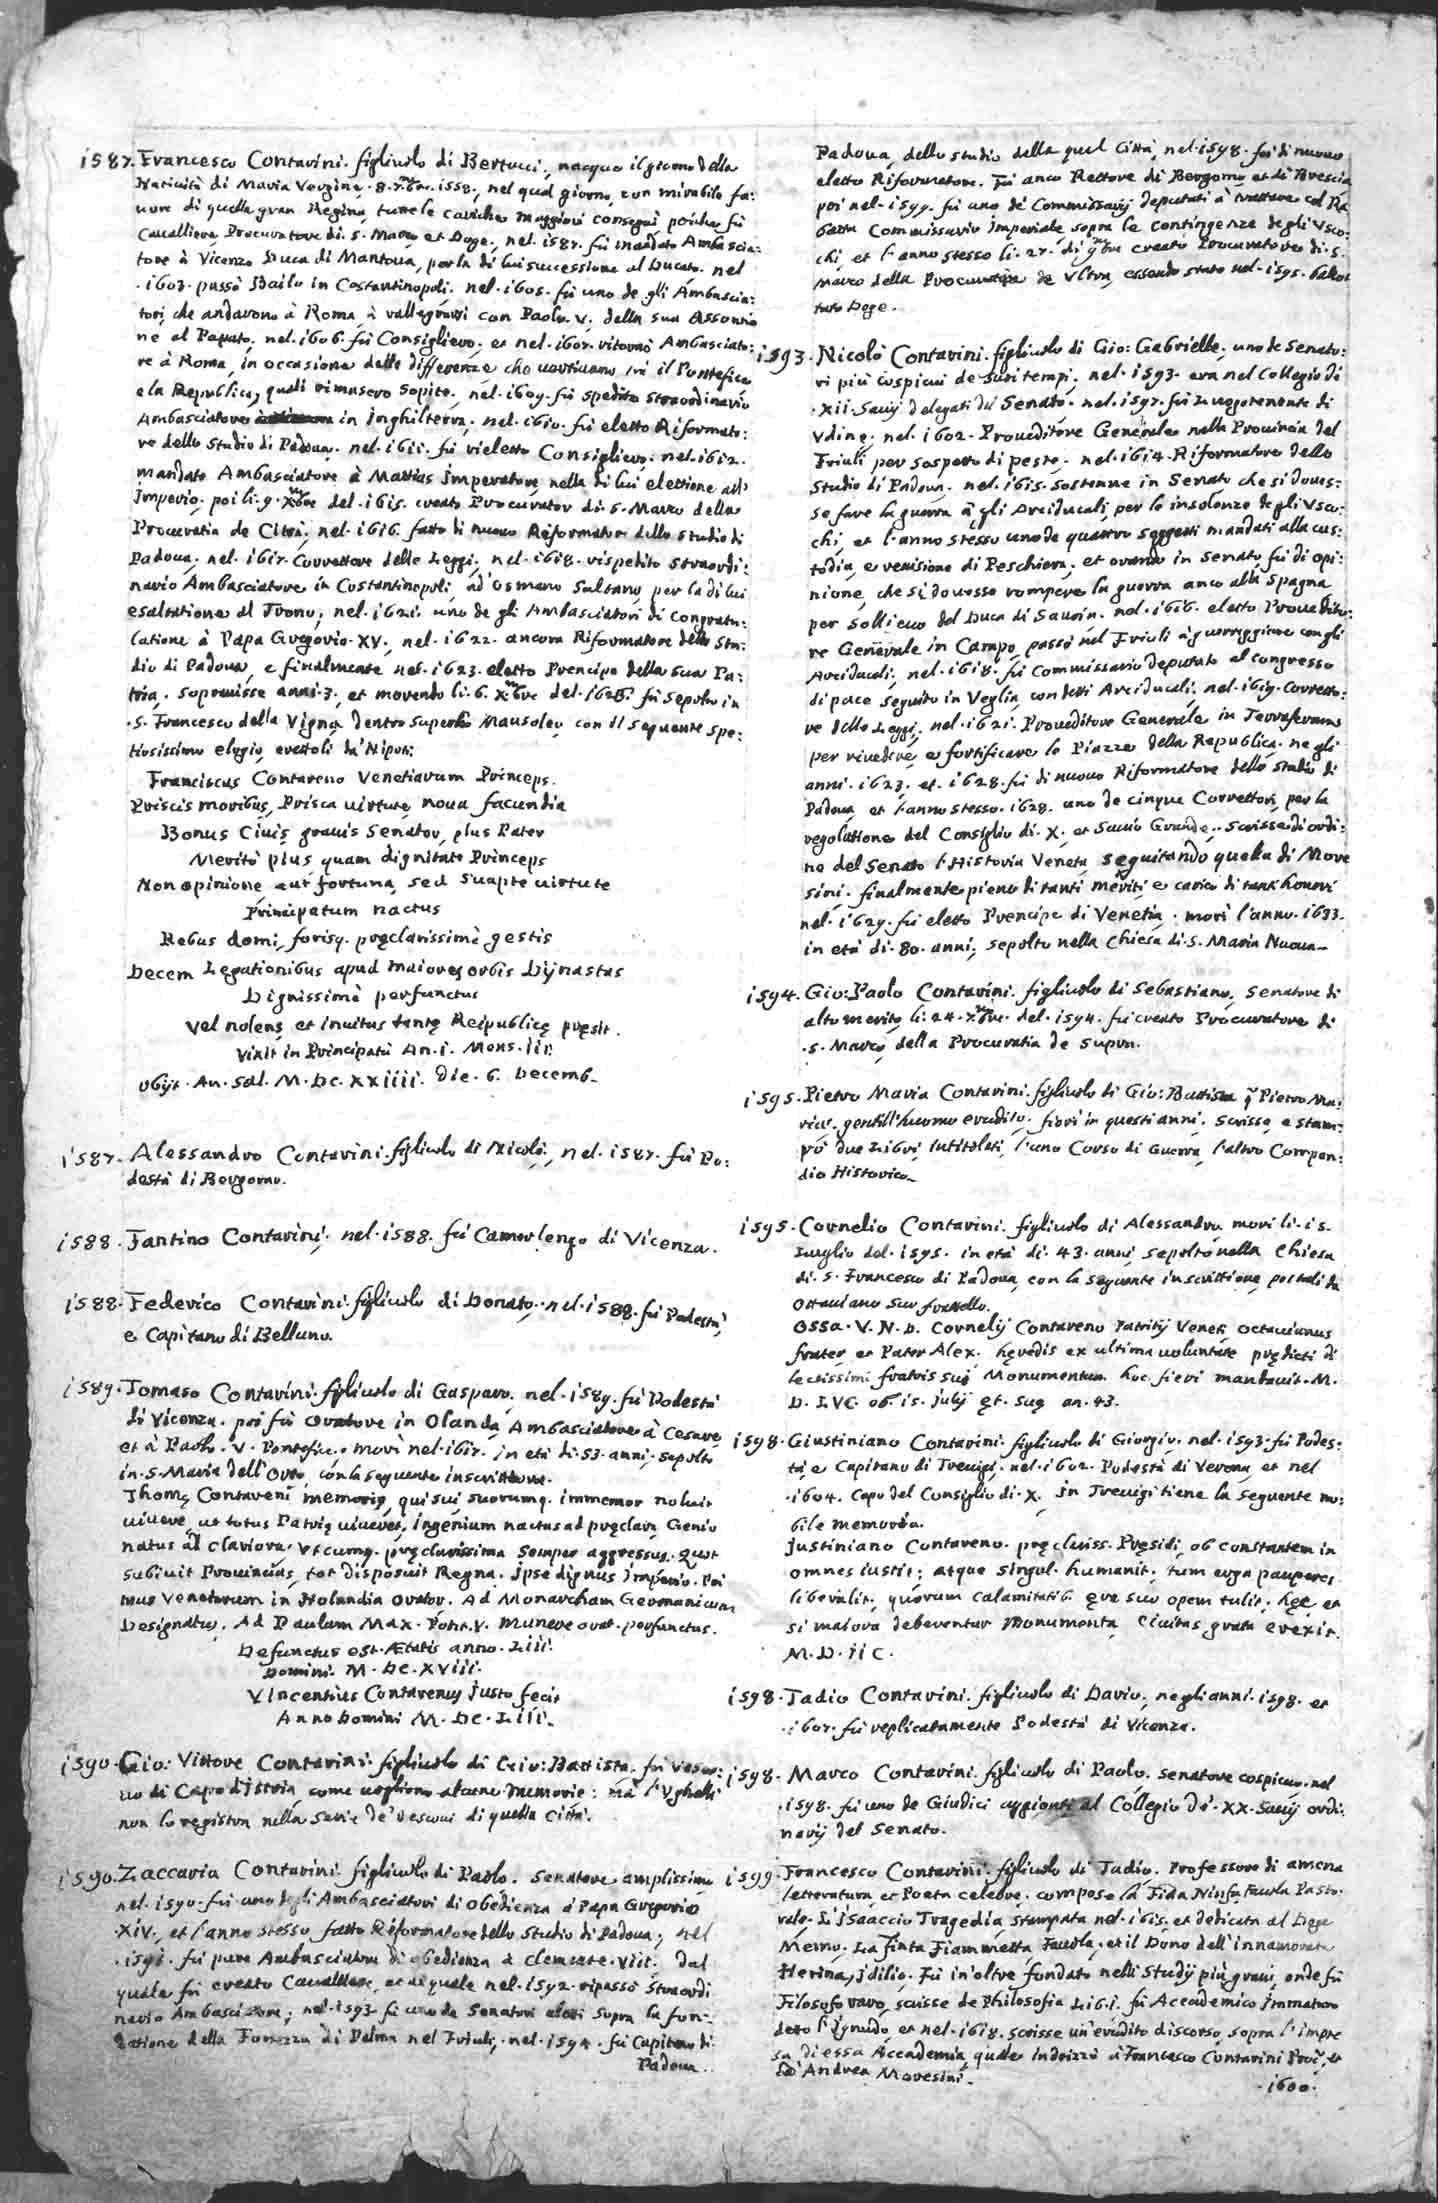 1587. Francesco Contarini. figliuolo di Bertucci, nacque il giorno della
Natiuità di Maria Vergine. 8. 7mbre. 1558., nel qual giorno, con mirabile fa:
uore di quella gran Regina, tutte le cariche maggiori conseguì, poiche fù
Caualliere, Procuratore di. S. Marco et Doge, nel. 1587. fù mandato Ambascia:
tore à Vicenzo Duca di Mantoua, per la di lui successione al Ducato. nel
.1603. passò Bailo in Costantinopoli. nel. 1605. fù uno de gli Ambascia:
tori, che andarono à Roma, à rallegrarsi con Paolo. V. della sua Assontio
ne al Papato. nel. 1606. fù Consigliero, et nel. 1607. ritornò Ambasciato:
re à Roma, in occasione delle differenze, che uertiuano trà il Pontefice
e la Republica, quali rimasero sopite. nel. 1609. fù spedito straordinario
Ambasciatore in Inghilterra, nel. 1610. fù eletto Riformato:
re dello Studio di Padoua. nel. 1611. fù rieletto Consigliero. nel. 1612.
mandato Ambasciatore à Mattias Imperatore, nella di lui elettione all'
Imperio. poi li. 9. Xmbre del. 1615. creato Procurator di. S. Marco della
Procuratia de Citrà, nel. 1616. fatto di nuouo Riformator dello studio di
Padoua. nel. 1617. Correttore delle Leggi, nel. 1618. rispedito straordi:
nario Ambasciatore in Costantinopoli, ad Osmano Sultano, per la di lui
esaltatione al Trono, nel. 1621. uno de gli Ambasciatori di congratu:
latione à Papa Gregorio. XV., nel. 1622. ancora Riformatore dello Stu:
dio di Padoua, e finalmente nel. 1623. eletto Prencipe della sua Pa:
tria. soprauisse anni. 3., et morendo li. 6. Xmbre del. fù sepolto in
.S. Francesco della Vigna, dentro superbo Mausoleo, con il seguente spe:
tiosissimo elogio, erettoli da' Nipoti:
Franciscus Contareno Venetiarum Princeps.
Priscis moribus, Prisca uirtute, noua facundia
Bonus Ciuis, grauis Senator, plus Pater
Merito plus, quam dignitate Princeps
Non opinione aut fortuna, sed suapte uirtute
Principatum nactus
Rebus domi, forisq. pręclarissimè gestis
Decem Legationibus apud maiores orbis Dijnastas
Dignissimè perfunctus
Vel nolens, et inuitus tantę Reipublicę pręsit.
Vixit in Principatu An. i. Mens. iii.
Obijt. An. Sal. M. DC. XXIIII. Die. 6. Decemb.
1587. Alessandro Contarini. figliuolo di Nicolò, nel. 1587. fù Po:
destà di Bergomo.
1588. Fantino Contarini, nel. 1588. fù Camerlengo di Vicenza.
1588. Federico Contarini. figliuolo di Donato, nel. 1588. fù Podestà,
e Capitano di Belluno.
1589. Tomaso Contarini. figliuolo di Gasparo, nel. 1589. fù Podestà
di Vicenza. poi fù Oratore in Olanda, Ambasciatore à Cesare,
et à Paolo. V. Pontefice. morì nel. 1617. in età di. 53. anni. sepolto
in. S. Maria dell'Orto, con la seguente inscrittione.
Thomę Contareni memorię, qui sui suorumq. immemor noluit
uiuere, ut totus Patrię uiueret, ingenium nactus ad pręclara, Genio
natus ad clariora. Vtcumq. pręclarissima semper aggressus. Quot
subiuit Prouincias, tot disposuit Regna. ipse dignus imperio. Pri
mus Venetorum in Holandia orator. Ad Monarcham Germanicum
Designatus. Ad Paulum Max. Pont. V. munere orat. perfunctus.
Defunctus est Ætatis anno. Liii.
Domini. M. DC. XVIII.
Vincentius Contarenus justo fecit
Anno Domini M. DC. Liii.
1590. Gio: Vittore Contarini. figliuolo di Gio: Battista, fù Vesco:
uo di Capo d'Istria, come uogliono alcune memorie: mà l'Vghelli
non lo registra nella serie de' Vescoui di quella Città.
1590. Zaccaria Contarini. figliuolo di Paolo. Senatore amplissimo
nel. 1590. fù uno degli Ambasciatori di obedienza à Papa Gregorio
XIV., et l'anno stesso, fatto Riformatore dello Studio di Padoua, nel
.1591. fù pure Ambasciatore di obedienza à Clemente. VIII. dal
quale fù creato Caualliere, et al quale nel. 1592. ripassò straordi
nario Ambasciatore; nel. 1593. fù uno de Senatori eletti sopra la fon:
datione della Fortezza di Palma nel Friuli, nel. 1594. fù Capitano di
Padoua.
Padoua, dello studio della qual Città, nel. 1598. fù di nuouo
eletto Riformatore. Fù anco Rettore di Bergomo, et di Brescia
poi nel. 1599. fù uno de' Commissarij deputati à trattare col Ra
batta Commissario Imperiale sopra le contingenze degli Vsco:
chi, et l'anno stesso li. 27. di creato Procuratore di. S.
Marco della Procuratia de Vltra, essendo stato nel. 1595. ballot
tato Doge.
1593. Nicolò Contarini. figliuolo di Gio: Gabrielle, uno de Senato:
ri più cospicui de suoi tempi. nel. 1593. era nel Collegio di
.XII. Sauij delegati dal Senato. nel. 1597. fù Luogotenente di
Vdine, nel. 1602. Proueditore Generale nella Prouincia del
Friuli per sospetto di peste. nel. 1614. Riformatore dello
Studio di Padoua. nel. 1615. sostenne in Senato che si doues:
se fare la guerra à gli Arciducali, per le insolenze degli Vsco:
chi, et l'anno stesso uno de quattro soggetti mandati alla cus:
todia, e reuisione di Peschiera, et orando in Senato, fù di opi:
nione, che si douesse rompere la guerra anco alla Spagna
per sollieuo del Duca di Sauoia. nel. 1616. eletto Proueditu:
re Generale in Campo, passò nel Friuli à guerreggiare con gli
Arciducali, nel. 1618. fù Commissario deputato al congresso
di pace seguito in Veglia, con detti Arciducali, nel. 1619. Corretto:
re delle Leggi, nel. 1621. Proueditore Generale in Terraferma
per riuedere, e fortificare le Piazze della Republica. ne gli
anni. 1623. et. 1628. fù di nuouo Riformatore dello studio di
Padoua, et l'anno stesso. 1628. uno de cinque Correttori, per la
regolatione del Consiglio di. X. et Sauio Grande. Scrisse di ordi:
ne del Senato l'Historia Veneta, seguitando quella di Moro
sini. finalmente pieno di tanti meriti e carico di tanti honori
nel. 1629. fù eletto Prencipe di Venetia. morì l'anno. 1633.
in età di. 80. anni, sepolto nella Chiesa di. S. Maria Nuoua.
1594. Gio: Paolo Contarini. figliuolo di Sebastiano, Senatore di
alto merito, li. 24. 7mbre. del. 1594. fù creato Procuratore di
.S. Marco, della Procuratia de supra.
1595. Pietro Maria Contarini. figliuolo di Gio: Battista q. Pietro Ma:
ria. gentil'huomo erudito, fiorì in questi anni. scrisse, e stam:
pò due Libri, intitolati, l'uno Corso di Guerra, l'altro Compen:
dio Historico.
1595. Cornelio Contarini. figliuolo di Alessandro, morì li. 15.
Luglio del. 1595. in età di. 43. anni, sepolto nella Chiesa
di. S. Francesco di Padoua, con la seguente inscrittione, postali da
Ottauiano suo fratello.
Ossa. V. N. D. Cornelij Contareno Patritij Veneti, Octauianus
frater, et Pater Alex. hęredis ex ultima uoluntate prędicti di
lectissimi fratris sui Monumentum hoc fieri mandauit. M.
D. IVC. ob. 15. Julij ęt. suę an. 43.
1598. Giustiniano Contarini. figliuolo di Giorgio, nel. 1593. fù Podes:
tà, e Capitano di Treuigi. nel. 1602. Podestà di Verona, et nel
.1604. Capo del Consiglio di. X. in Treuigi tiene la seguente no:
bile memoria.
Justiniano Contareno. pręclariss. Pręsidi, ob constantem in
omnes iustit; atque singul. humanit. tum erga pauperes
liberalit. quorum calamitatib. ęre suo opem tulit, hęc, et
si maiora deberentur monumenta, Ciuitas grata erexit.
M. D. IIC.
1598. Tadio Contarini. figliuolo di Dario, negli anni. 1598. et
.1607. fù replicatamente Podestà di Vicenza.
1598. Marco Contarini. figliuolo di Paolo. Senatore cospicuo, nel
.1598. fù uno de Giudici aggionti al Collegio de'. XX. Sauij ordi:
narij del Senato.
1599. Francesco Contarini. figliuolo di Tadio. Professore di amena
letteratura, et Poeta celebre. compose la Fida Ninfa, Fauola Pasto:
rale. L'isaaccio Tragedia, stampata nel. 1615. et dedicata al Doge
Memo. La finta Fiammetta, Fauola, et il Dono dell'innamorata
Herina, idilio. Fù in oltre fondato nelli Studij più graui, onde fù
Filosofo raro, scrisse de Philosofia Lib. i. fù Accademico Immaturo
detto l'Ignudo, et nel. 1618. scrisse un'erudito discorso, sopra l'impre
sa di essa Accademia, quale indrizzò à Francesco Contarini Procr., et
ad Andrea Moresini.
.1600.